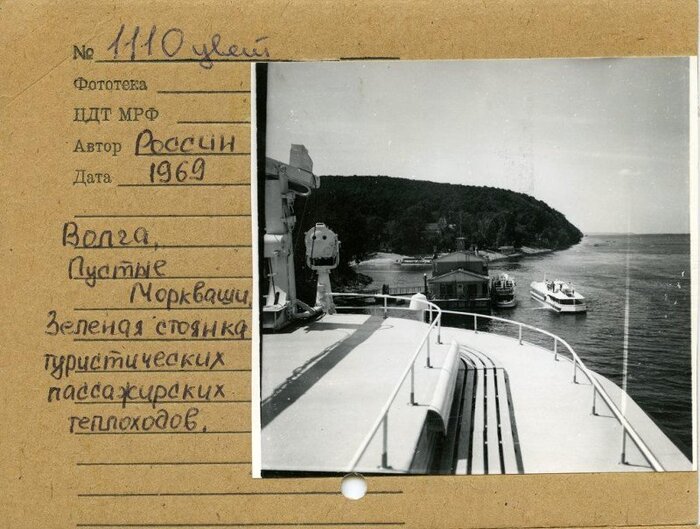 № 1110 цвет
Фототека
ЦДТ МРФ
Автор Россин
Дата 1969
Волга,
Пустые
Моркваши,
Зеленая стоянка
туристических
пассажирских
теплоходов.